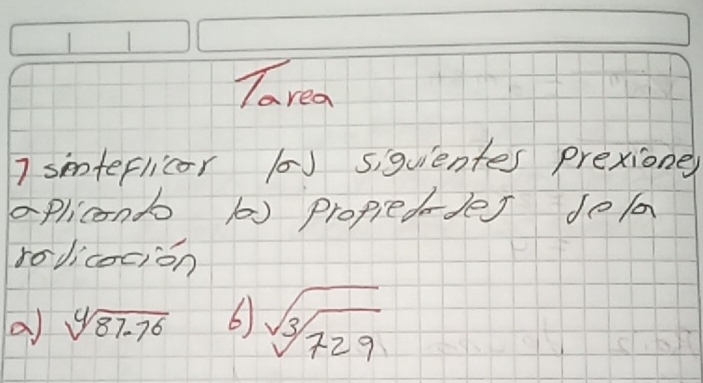 Tarea
1 simteflicar las siguientes Prexiones
aplicando las Propiedades de la
radicación
a) ∜81.16 b) √∛729